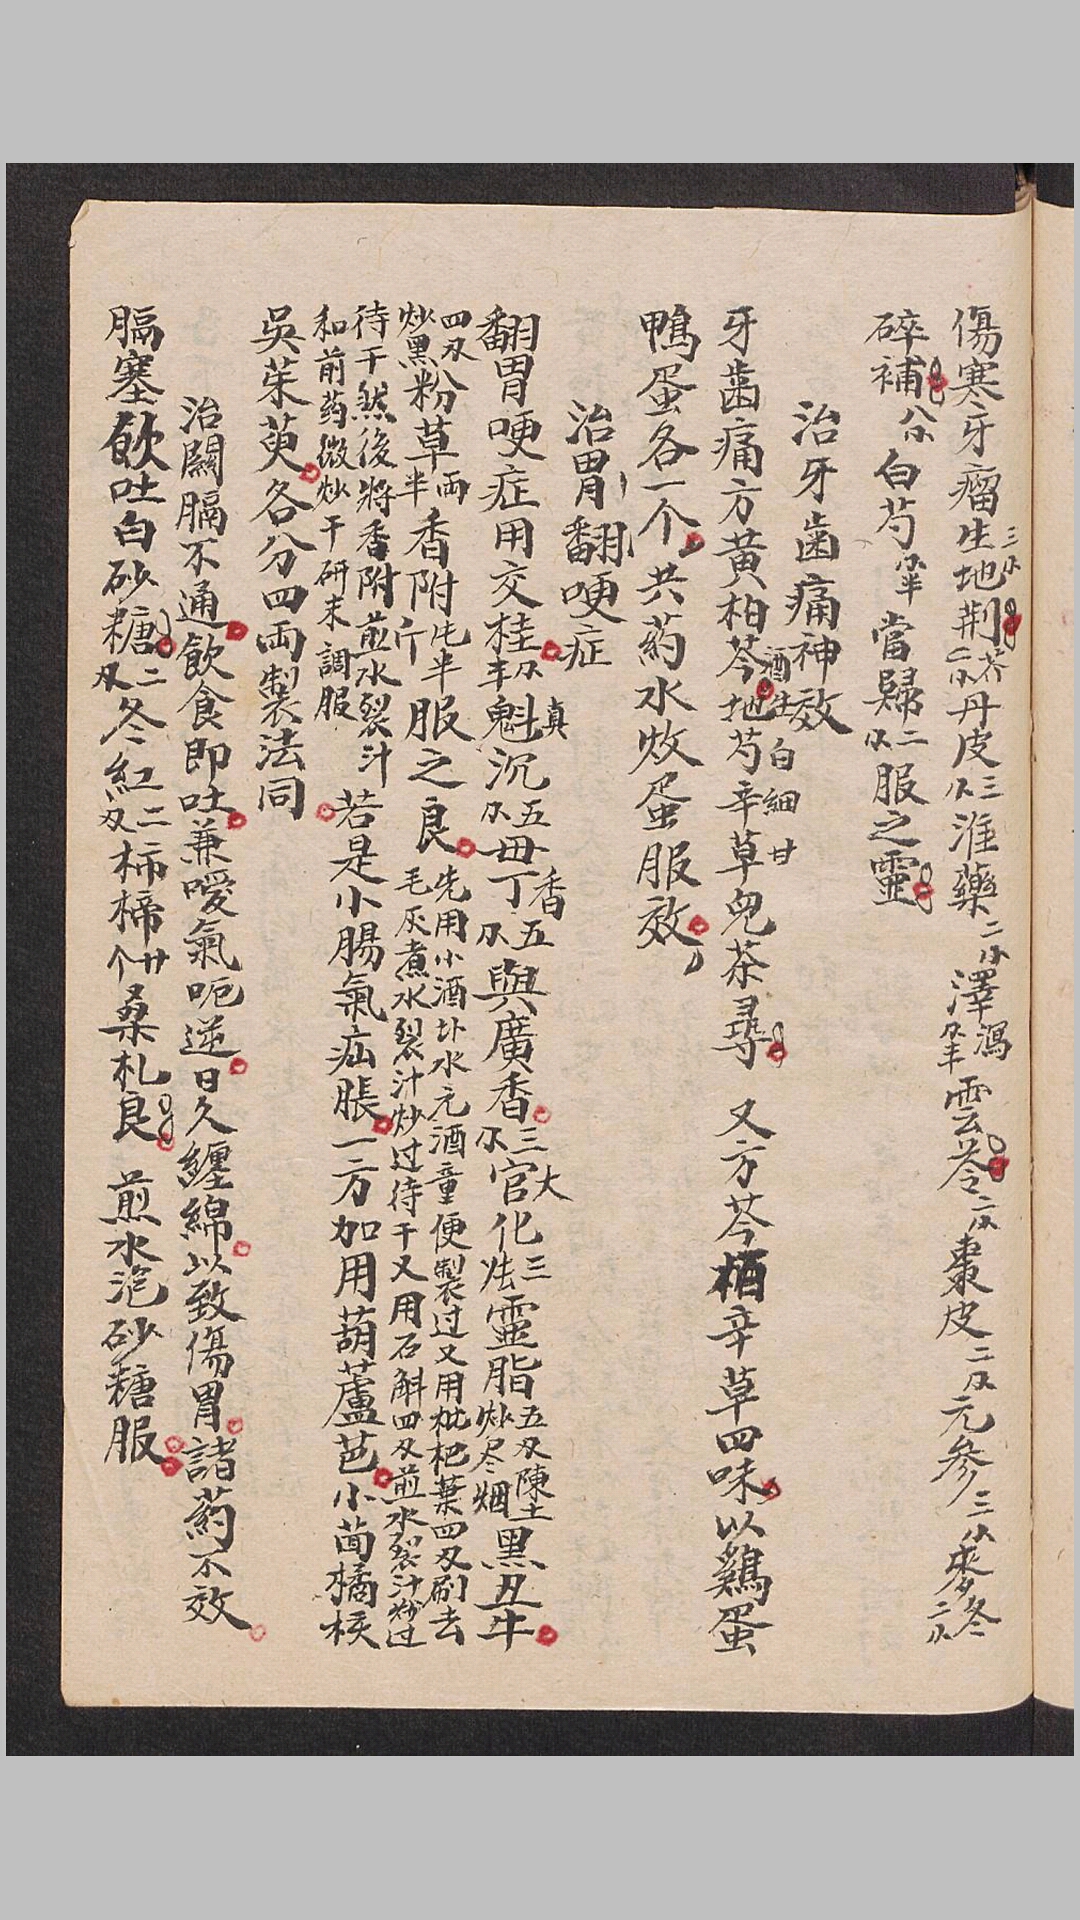 傷寒牙瘤生地三小荆芥二小丹皮三淮藥二小澤瀉雲苓二小棗皮二元參三小麥冬二小
碎補八小白芍當歸二服之靈
治牙齒痛神效
牙齒痛方黃柏芩酒生地白芍細辛甘草兒茶尋 又方芩栢辛草四味以鷄蛋
鴨蛋各一个共葯水炆蛋服效
治胃翻哽症
翻胃哽症用交桂真魁沉五母丁香五與廣香三官大化三灵靈脂五刄陳土炒尽烟黑丑牛
四刄炒黑粉草兩半香附半斤服之良先用小酒卦水元酒童便製过又用枇杷葉四刄刷去
毛灰煮水裂汁炒过待干又用石斛四刄煎水裂汁炒过
待干然後將香附煎水裂汁
和前葯微炒干研末調服
若是小腸氣疝脹一方加用葫蘆芭小茴橘核
吳茱萸各分四兩製法同
治關膈不通飲食即吐兼噯氣呃逆日久纏綿以致傷胃諸葯不效
膈塞飲吐白砂糖二刄冬紅二刄柿椂廿个桑札良 煎水泡砂糖服